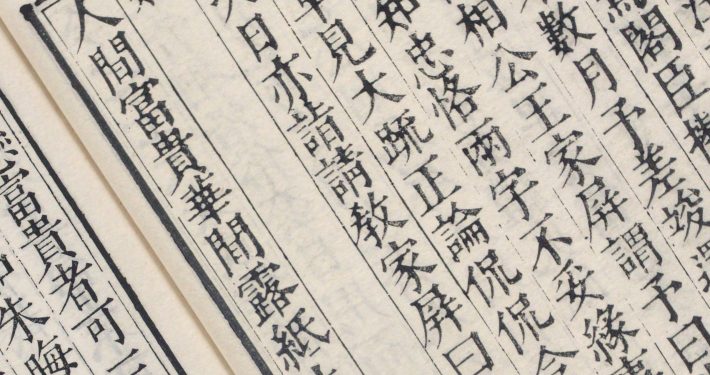 閣臣
數月予差竣
相公王家屏謂予曰
忠恪兩字不妥緣
見大疏正論侃侃
日亦詣請教家屏曰
人間富貴華間露紙
富貴者可
朱晦